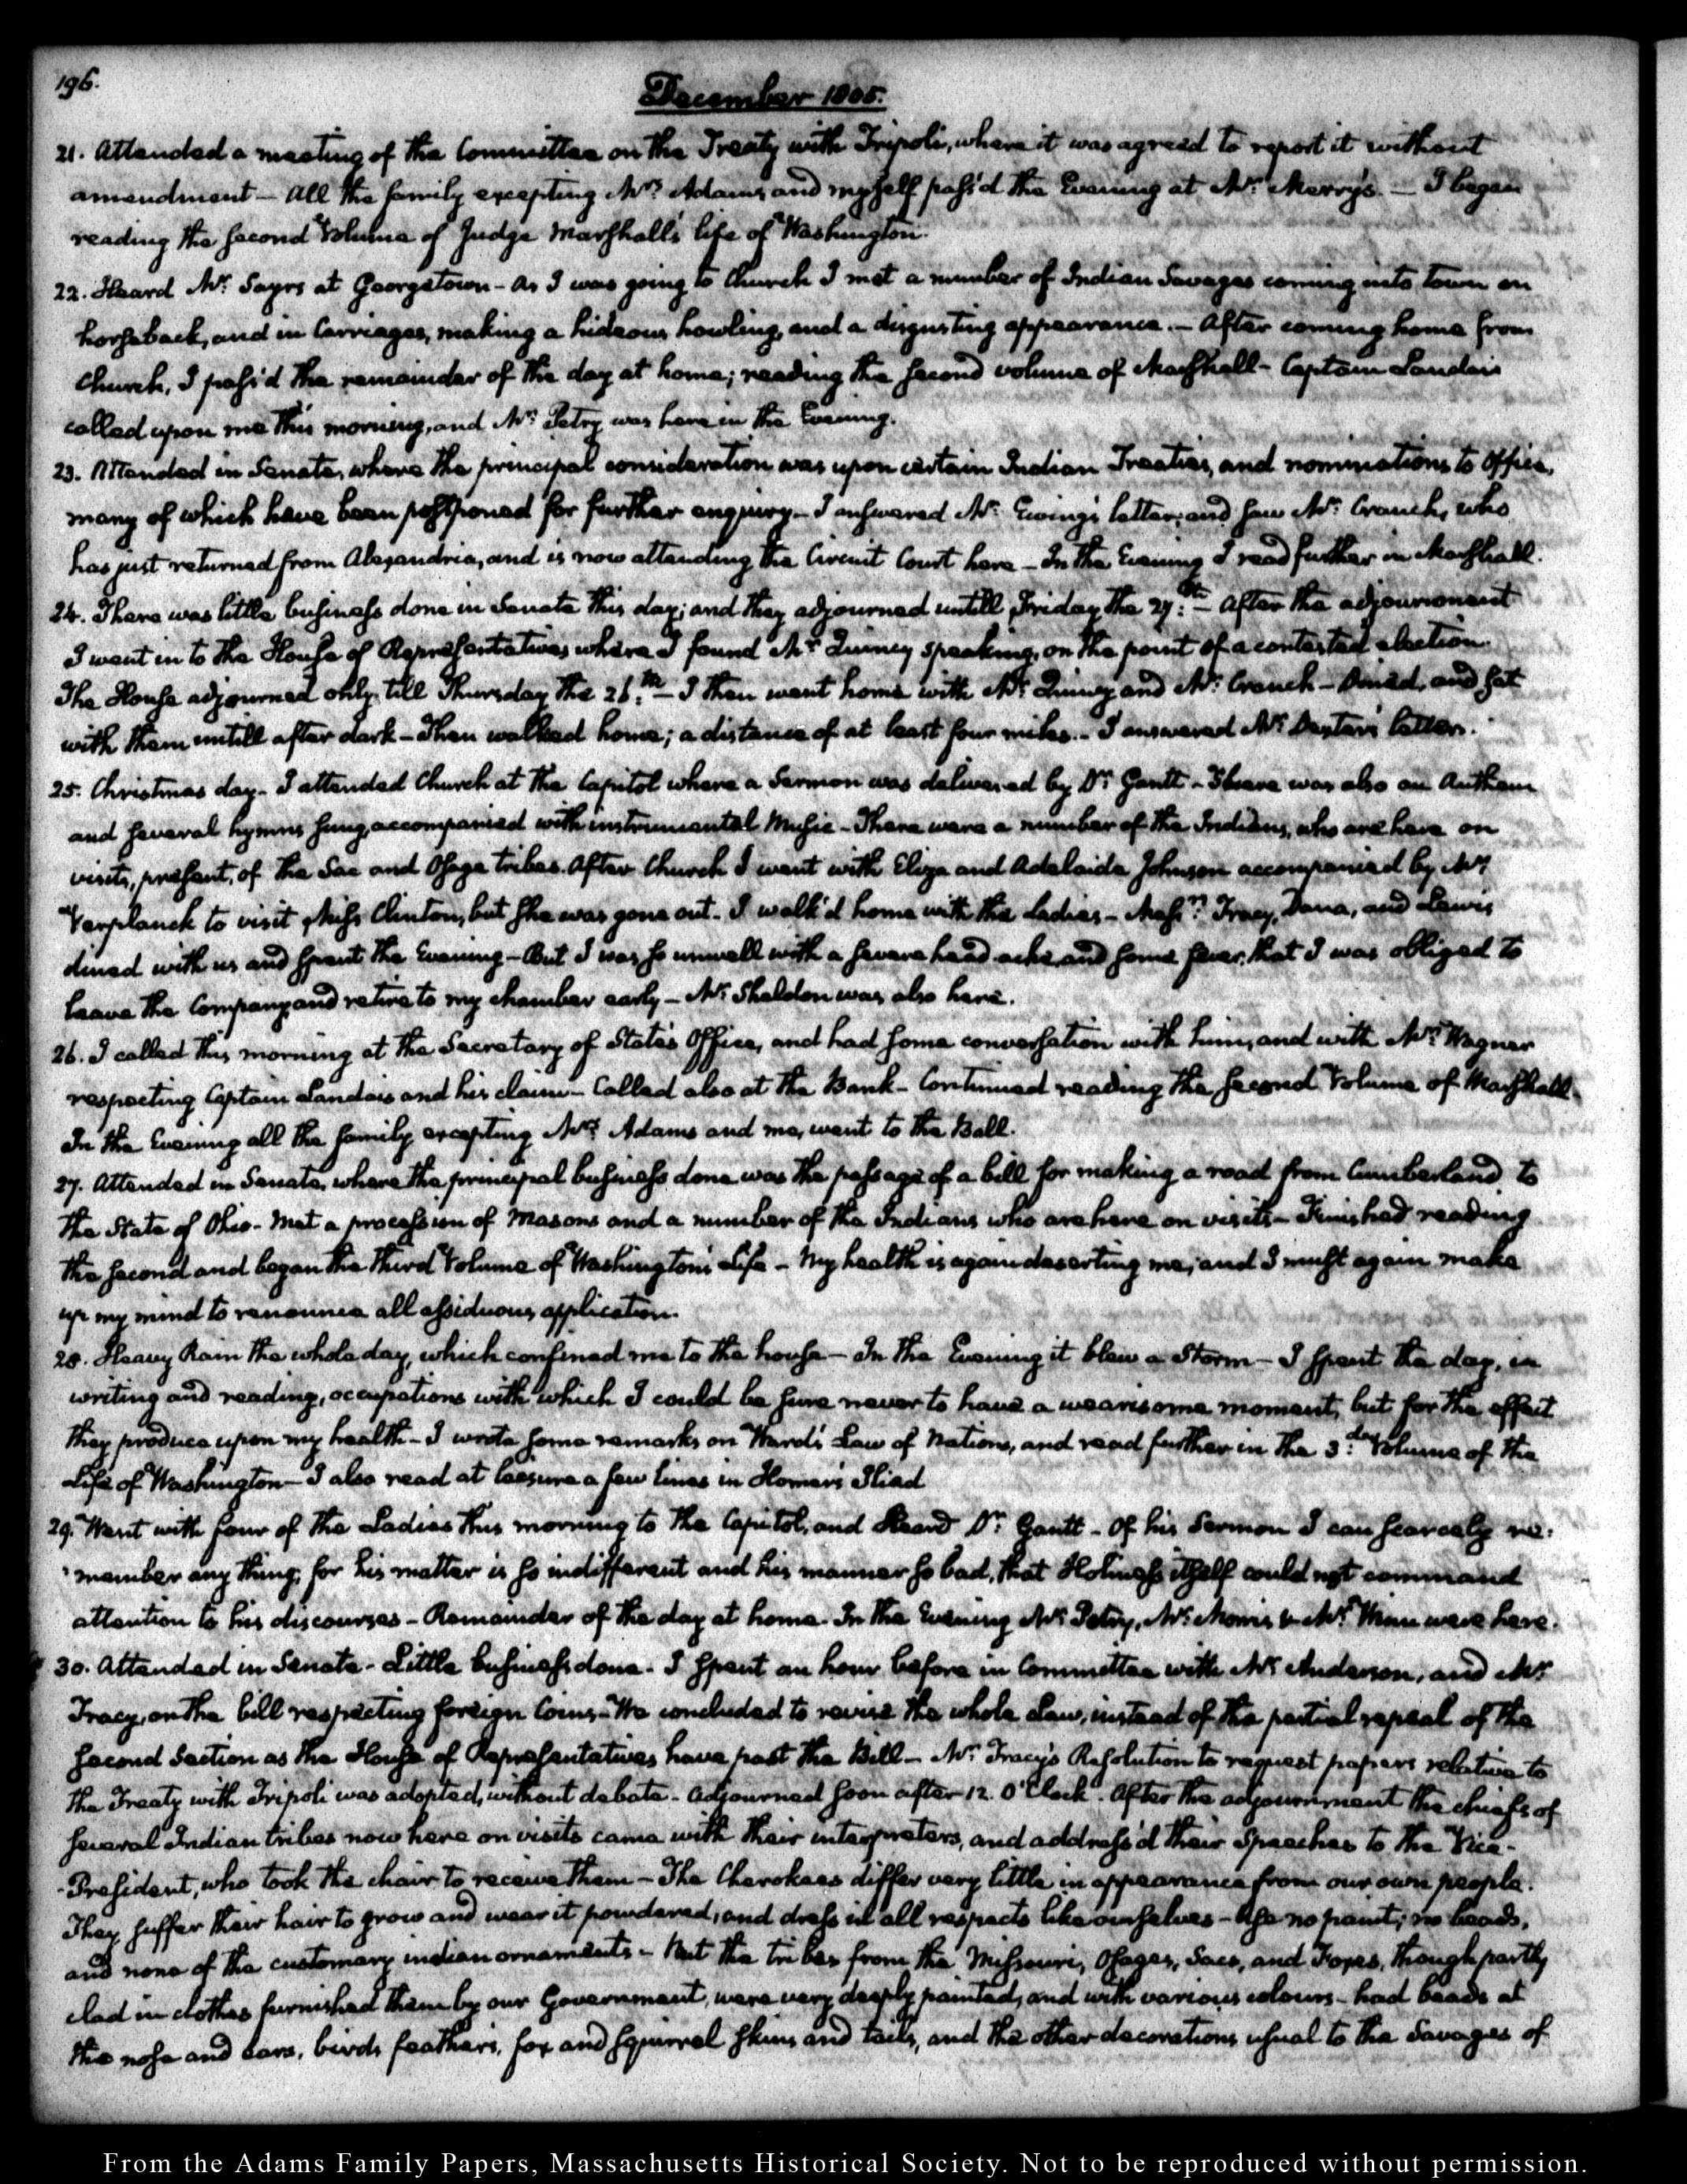 196.
December 1805.
21. Attended a meeting of the Committee on the Treaty with Tripoli, where it was agreed to report it without
amendment — All the family excepting Mrs. Adams and myself pass'd the Evening at Mr. Merry's. — I began
reading the second Volume of Judge Marshall's life of Washington.
22. Heard Mr. Sayrs at Georgetown — As I was going to Church I met a number of Indian Savages coming into town on
horseback, and in Carriages, making a hideous howling, and a disgusting appearance. — After coming home from
Church, I pass'd the remainder of the day at home; reading the second volume of Marshall — Captain Landais
called upon me this morning, and Mr. Petry was here in the Evening.
23. Attended in Senate, where the principal consideration was upon certain Indian Treaties, and nominations to Office,
many of which have been postponed for further enquiry — I answered Mr. Ewing's letter, and saw Mr. Cranch, who
has just returned from Alexandria, and is now attending the Circuit Court here — In the Evening I read further in Marshall.
24. There was little business done in Senate this day; and they adjourned untill Friday the 27th. — After the adjournment
I went in to the House of Representatives where I found Mr. Quincy speaking, on the point of a contested election.
The House adjourned only till Thursday the 26th. — I then went home with Mr. Quincy and Mr. Cranch — Dined, and sat
with them untill after dark — Then walked home; a distance of at least four miles. — I answered Mr. Dexter's letter.
25. Christmas day — I attended Church at the Capitol where a Sermon was delivered by Dr. Gantt — There was also an Anthem
and several hymns sung accompanied with instrumental Music — There were a number of the Indians, who are here on
visits, present, of the Sac and Osage tribes. After Church I went with Eliza and Adelaide Johnson accompanied by Mr.
Verplanck to visit Miss Clinton, but she was gone out. I walk'd home with the Ladies — Messrs. Tracy, Dana, and Lewis
dined with us and spent the Evening — But I was so unwell with a severe head ache, and some fever, that I was obliged to
leave the Company, and retire to my chamber early — Mr. Sheldon was also here.
26. I called this morning at the Secretary of State's Office, and had some conversation with him, and with Mr. Wagner
respecting Captain Landais and his claim — Called also at the Bank — Continued reading the second Volume of Marshall.
In the Evening all the family excepting Mrs. Adams and me, went to the Ball.
27. Attended in Senate, where the principal business done was the passage of a bill for making a road from Cumberland to
the State of Ohio — Met a procession of Masons and a number of the Indians who are here on visits — Finished reading
the second and began the third Volume of Washington's Life — My health is again deserting me; and I must again make
up my mind to renounce all assiduous application.
28. Heavy Rain the whole day, which confined me to the house — In the Evening it blew a Storm — I spent the day, in
writing and reading, occupations with which I could be sure never to have a wearisome moment, but for the effect
they produce upon my health — I wrote some remarks on Ward's Law of Nations, and read further in the 3d. Volume of the
Life of Washington — I also read at leisure a few lines in Homer's Iliad
29. Went with four of the Ladies this morning to the Capitol, and Heard Dr. Gantt — Of his Sermon I can scarcely re:
:member any thing; for his matter is so indifferent and his manner so bad, that Holiness itself could not command
attention to his discourses — Remainder of the day at home. In the Evening Mr. Petry, Mr. Morris & Mr. were here.
30. Attended in Senate — Little business done. I spent an hour before in Committee with Mr. Anderson, and Mr.
Tracy, on the bill respecting foreign Coins — We concluded to revise the whole Law, instead of the partial repeal of the
second Section as the House of Representatives have past the Bill — Mr. Tracy's Resolution to request papers relative to
the Treaty with Tripoli was adopted, without debate — Adjourned soon after 12. O'Clock. After the adjournment the chiefs of
several Indian tribes now here on visits came with their interpreters, and address'd their Speeches to the Vice-
-President, who took the chair to receive them — The Cherokees differ very little in appearance from our own people.
They suffer their hair to grow and wear it powdered, and dress in all respects like ourselves — Use no paint; no beads,
and none of the customary indian ornaments — But the tribes from the Missouri, Osages, Sacs, and Foxes, though partly
clad in clothes furnished them by our Government, were very deeply painted, and with various colours — had beads at
the nose and ears, birds feathers, fox and squirrel skins and tails, and the other decorations usual to the Savages of
From the Adams Family Papers, Massachusetts Historical Society. Not to be reproduced without permission.